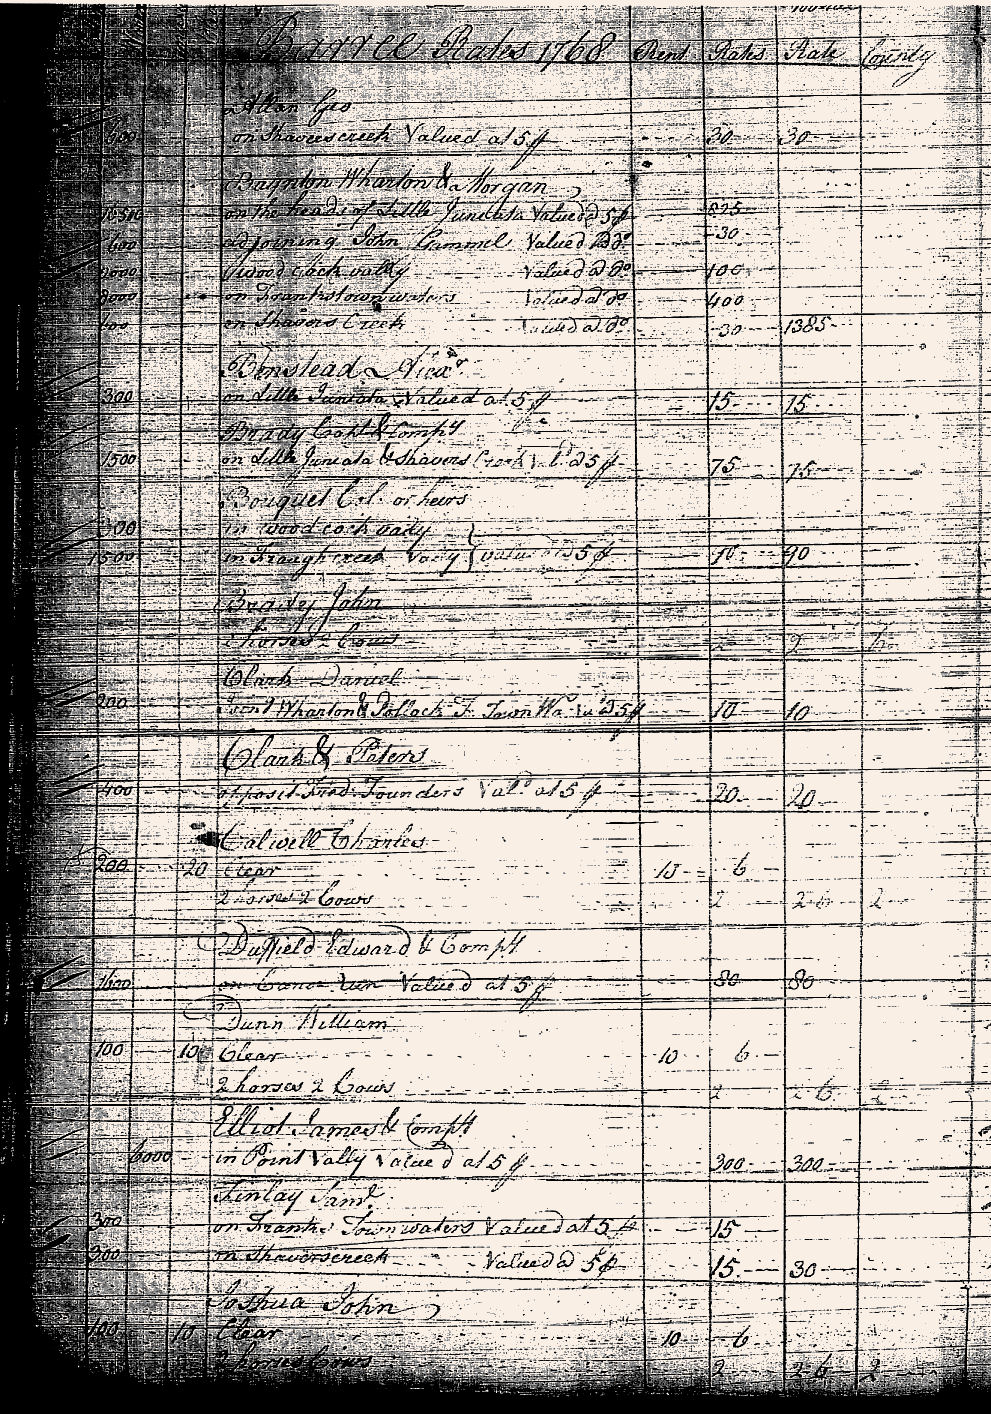 Barree Rates 1768 Rent Rates Rate County
Allan Geo
600 on Shaverscreek Valued at 5 ff 30 30
Baynton Wharton & Morgan
16500 on the heads of Little Juniata Valued @ 5 ff 825
600 adjoining John Cummel Valued @ do 30
2000 Wood cock vally Valued @ do 100
8000 on Frankstown waters Valued at do 400
600 on Shavers Creek Valued at do 30 1385
Benstead Alexr
300 on Little Juniata Valued at 5 ff 15 15
Brady Capt & Compy
1500 on Little Juniata & Shavers Creek Vald @ 5 ff 75 75
Bouquet Col. or heirs
300 in wood cock vally
1500 in Traugh creek Vally } valued @ 5 ff 90 90
John
2 horses 2 Cows 2 2
Clark Daniel
200 Wharton & Pollock F Town Wa Val @ 5 ff 10 10
Clark & Peters
400 opposit Fred. Founders Vald at 5 ff 20 20
Calwell Charles
200 20 Clear 15 6
2 horses 2 Cows 2 2 6 2
Duffield Edward & Compy
1600 on Canoe Run Valued at 5 ff 80 80
Dunn William
100 10 Clear 10 6
2 horses 2 Cows 2 2 6 2
Elliot James & Compy
6000 in Point Vally Valued at 5 ff 300 300
Finlay Saml
300 on Franks Town waters Valued at 5 ff 15
300 on Shaverscreek Valued @ 5 ff 15 30
Joshua John
100 10 Clear 10 6
2 horses Cows 2 2 6 2